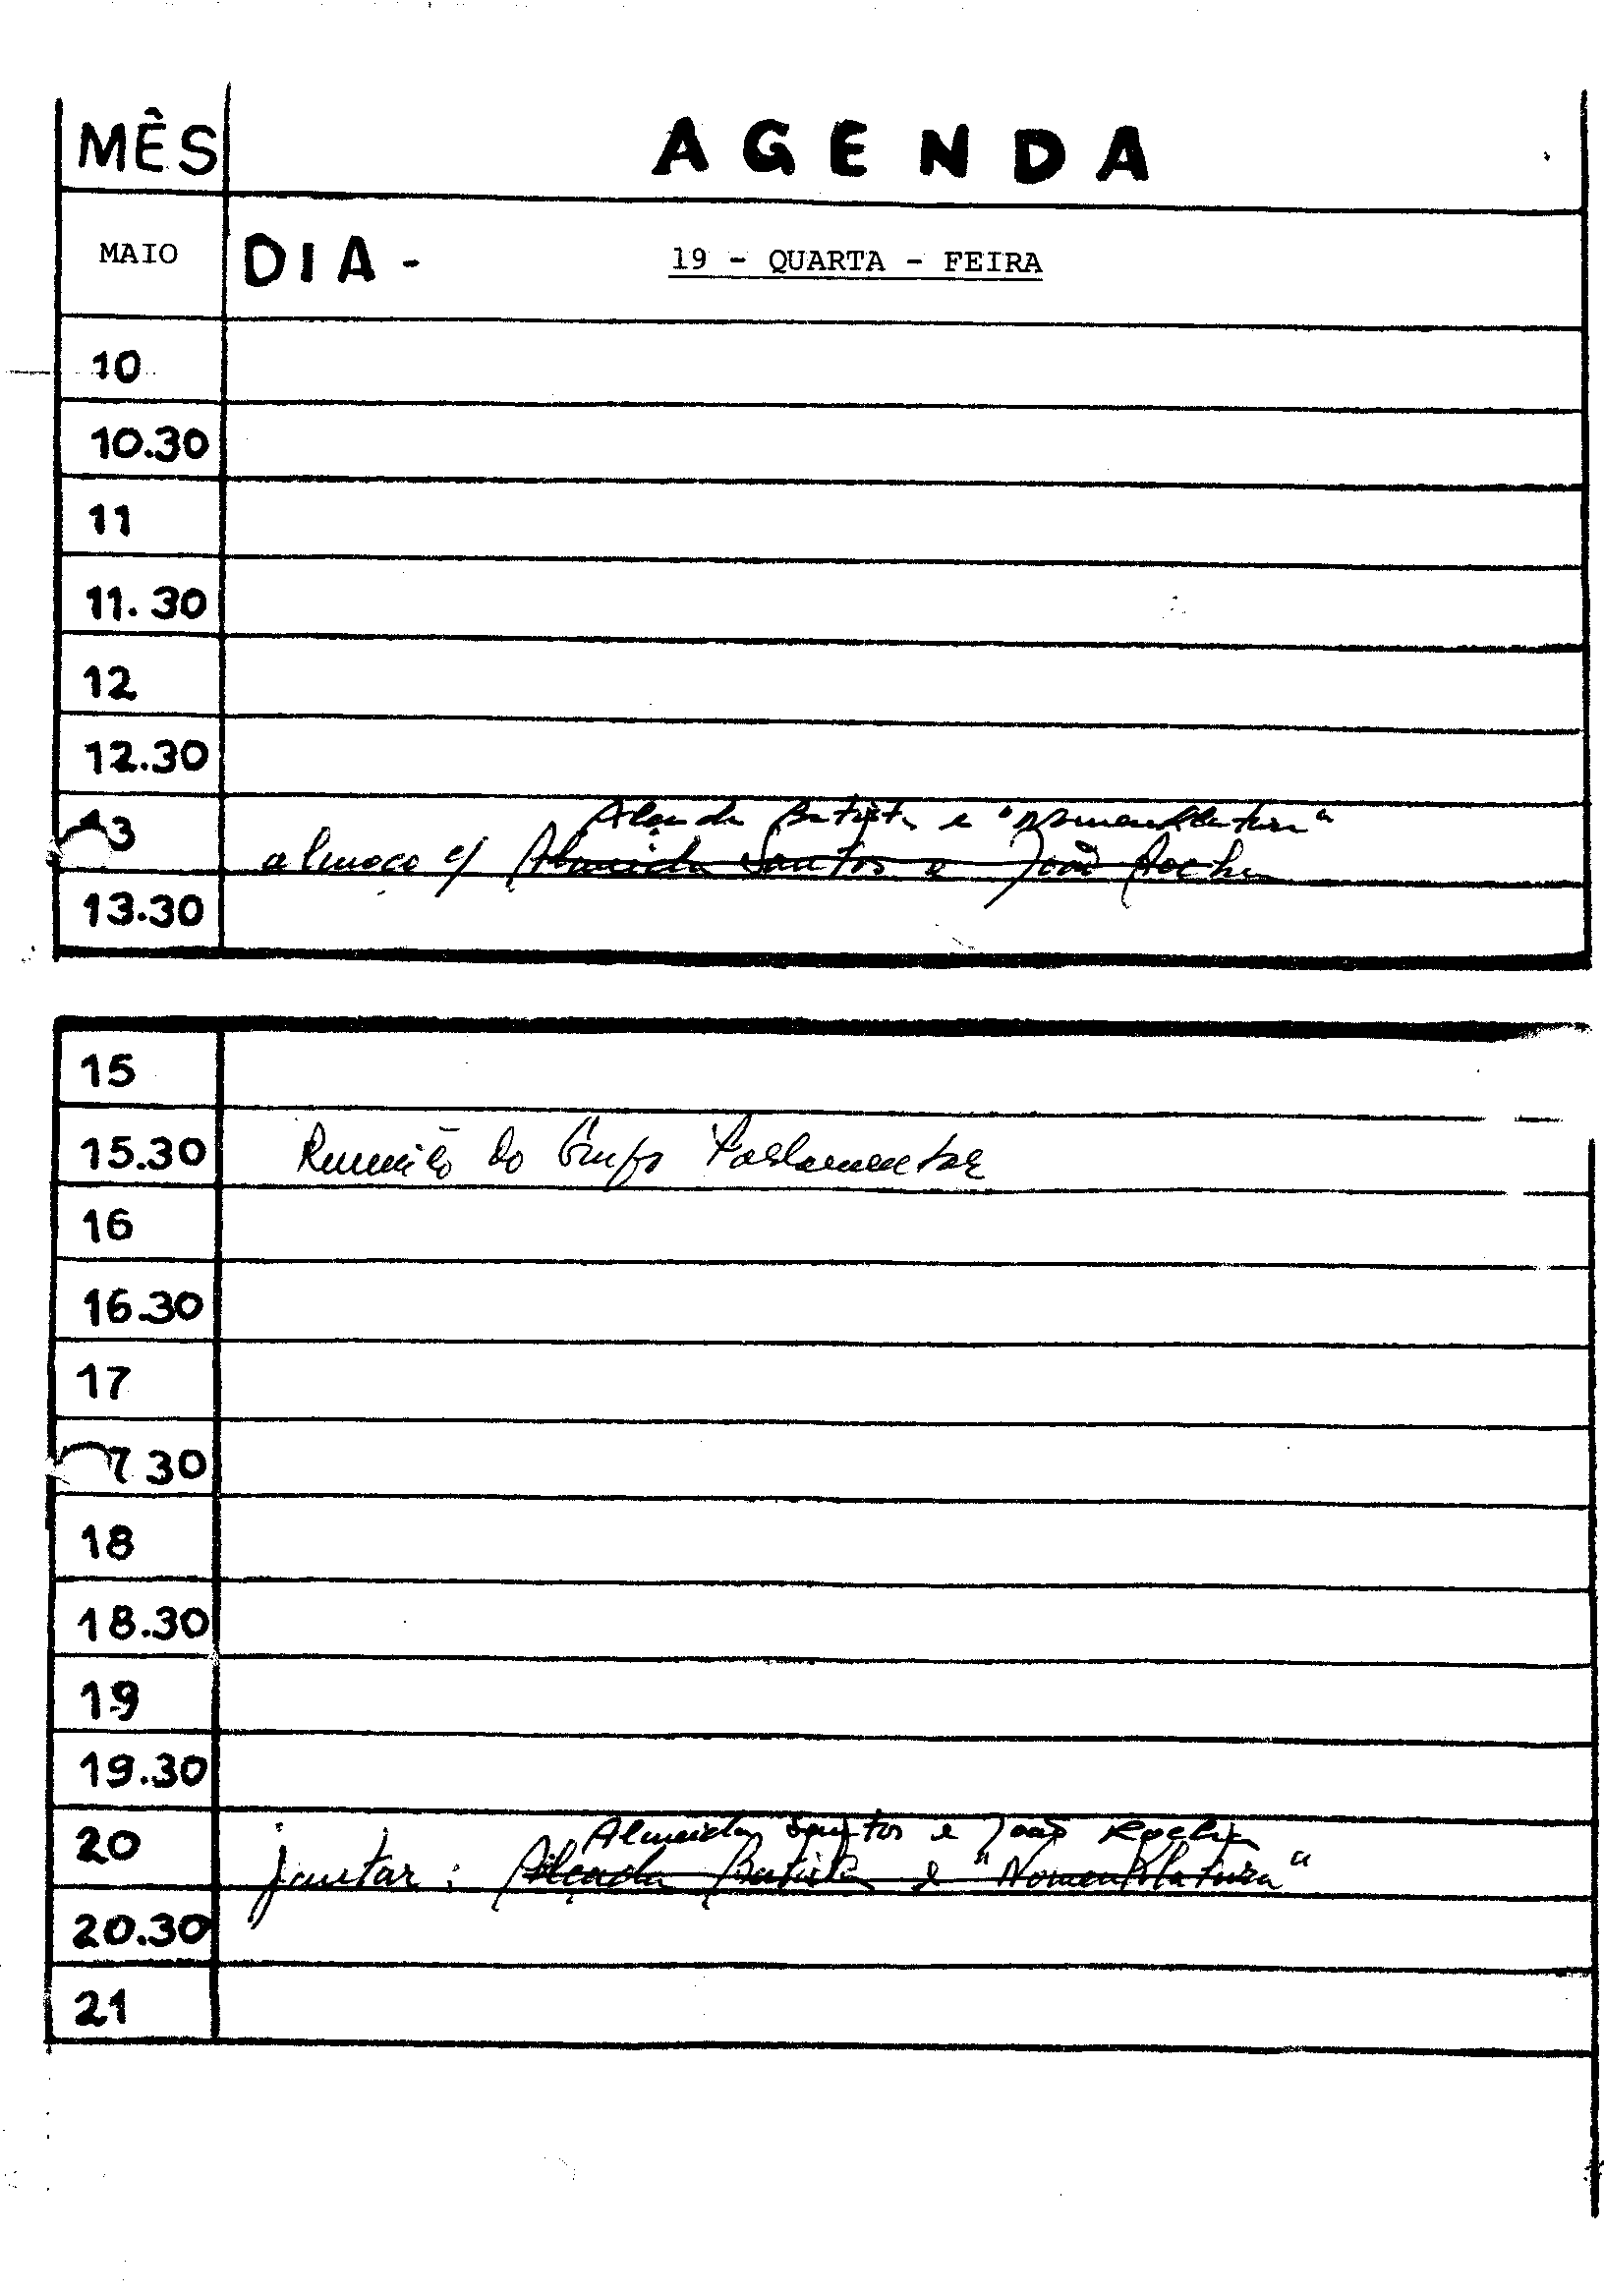 MÊS AGENDA
MAIO DIA - 19 - QUARTA - FEIRA
10
10.30
11
11.30
12
12.30
Alçada Batista e "nomenklatura"
13 almoço c/ Almeida Santos e João Rocha
13.30
15
15.30 Reunião do Grupo Parlamentar
16
16.30
17
7 30
18
18.30
19
19.30
Almeida Santos e João Rocha
20 jantar : Alçada Batista e "Nomenklatura"
20.30
21